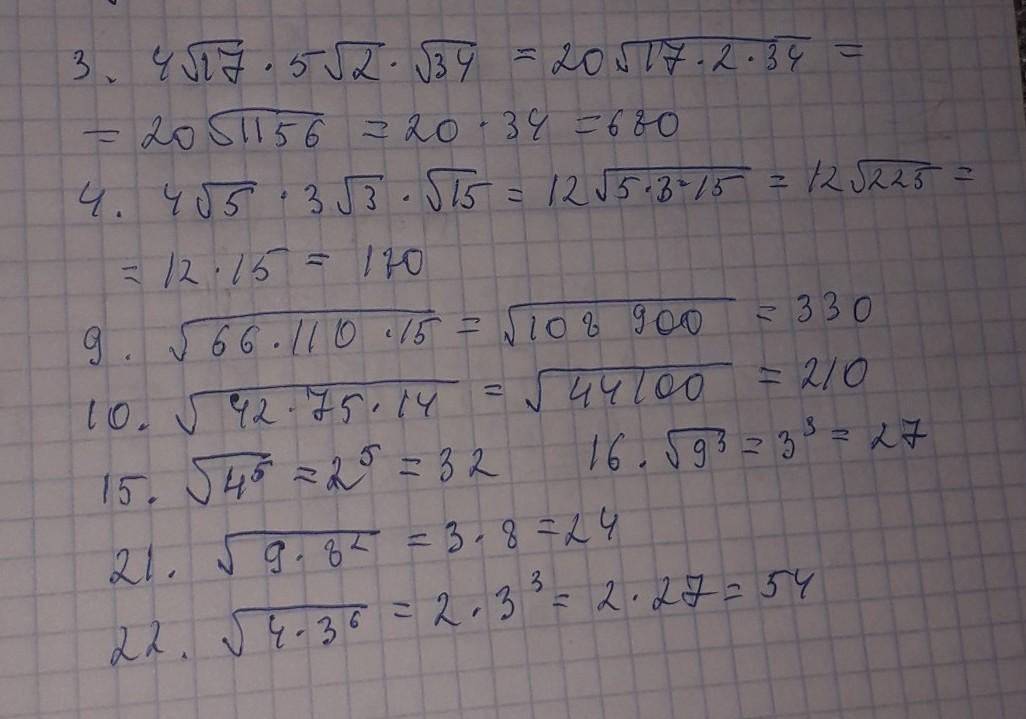 3. 4√17 · 5√2 · √34 = 20√17·2·34 =
= 20√1156 = 20 · 34 = 680
4. 4√5 · 3√3 · √15 = 12√5·3·15 = 12√225 =
= 12 · 15 = 180
9. √66·110·15 = √108 900 = 330
10. √42·75·14 = √44100 = 210
15. √4⁵ = 2⁵ = 32 16. √9³ = 3³ = 27
21. √9·8² = 3·8 = 24
22. √4·3⁶ = 2·3³ = 2·27 = 54